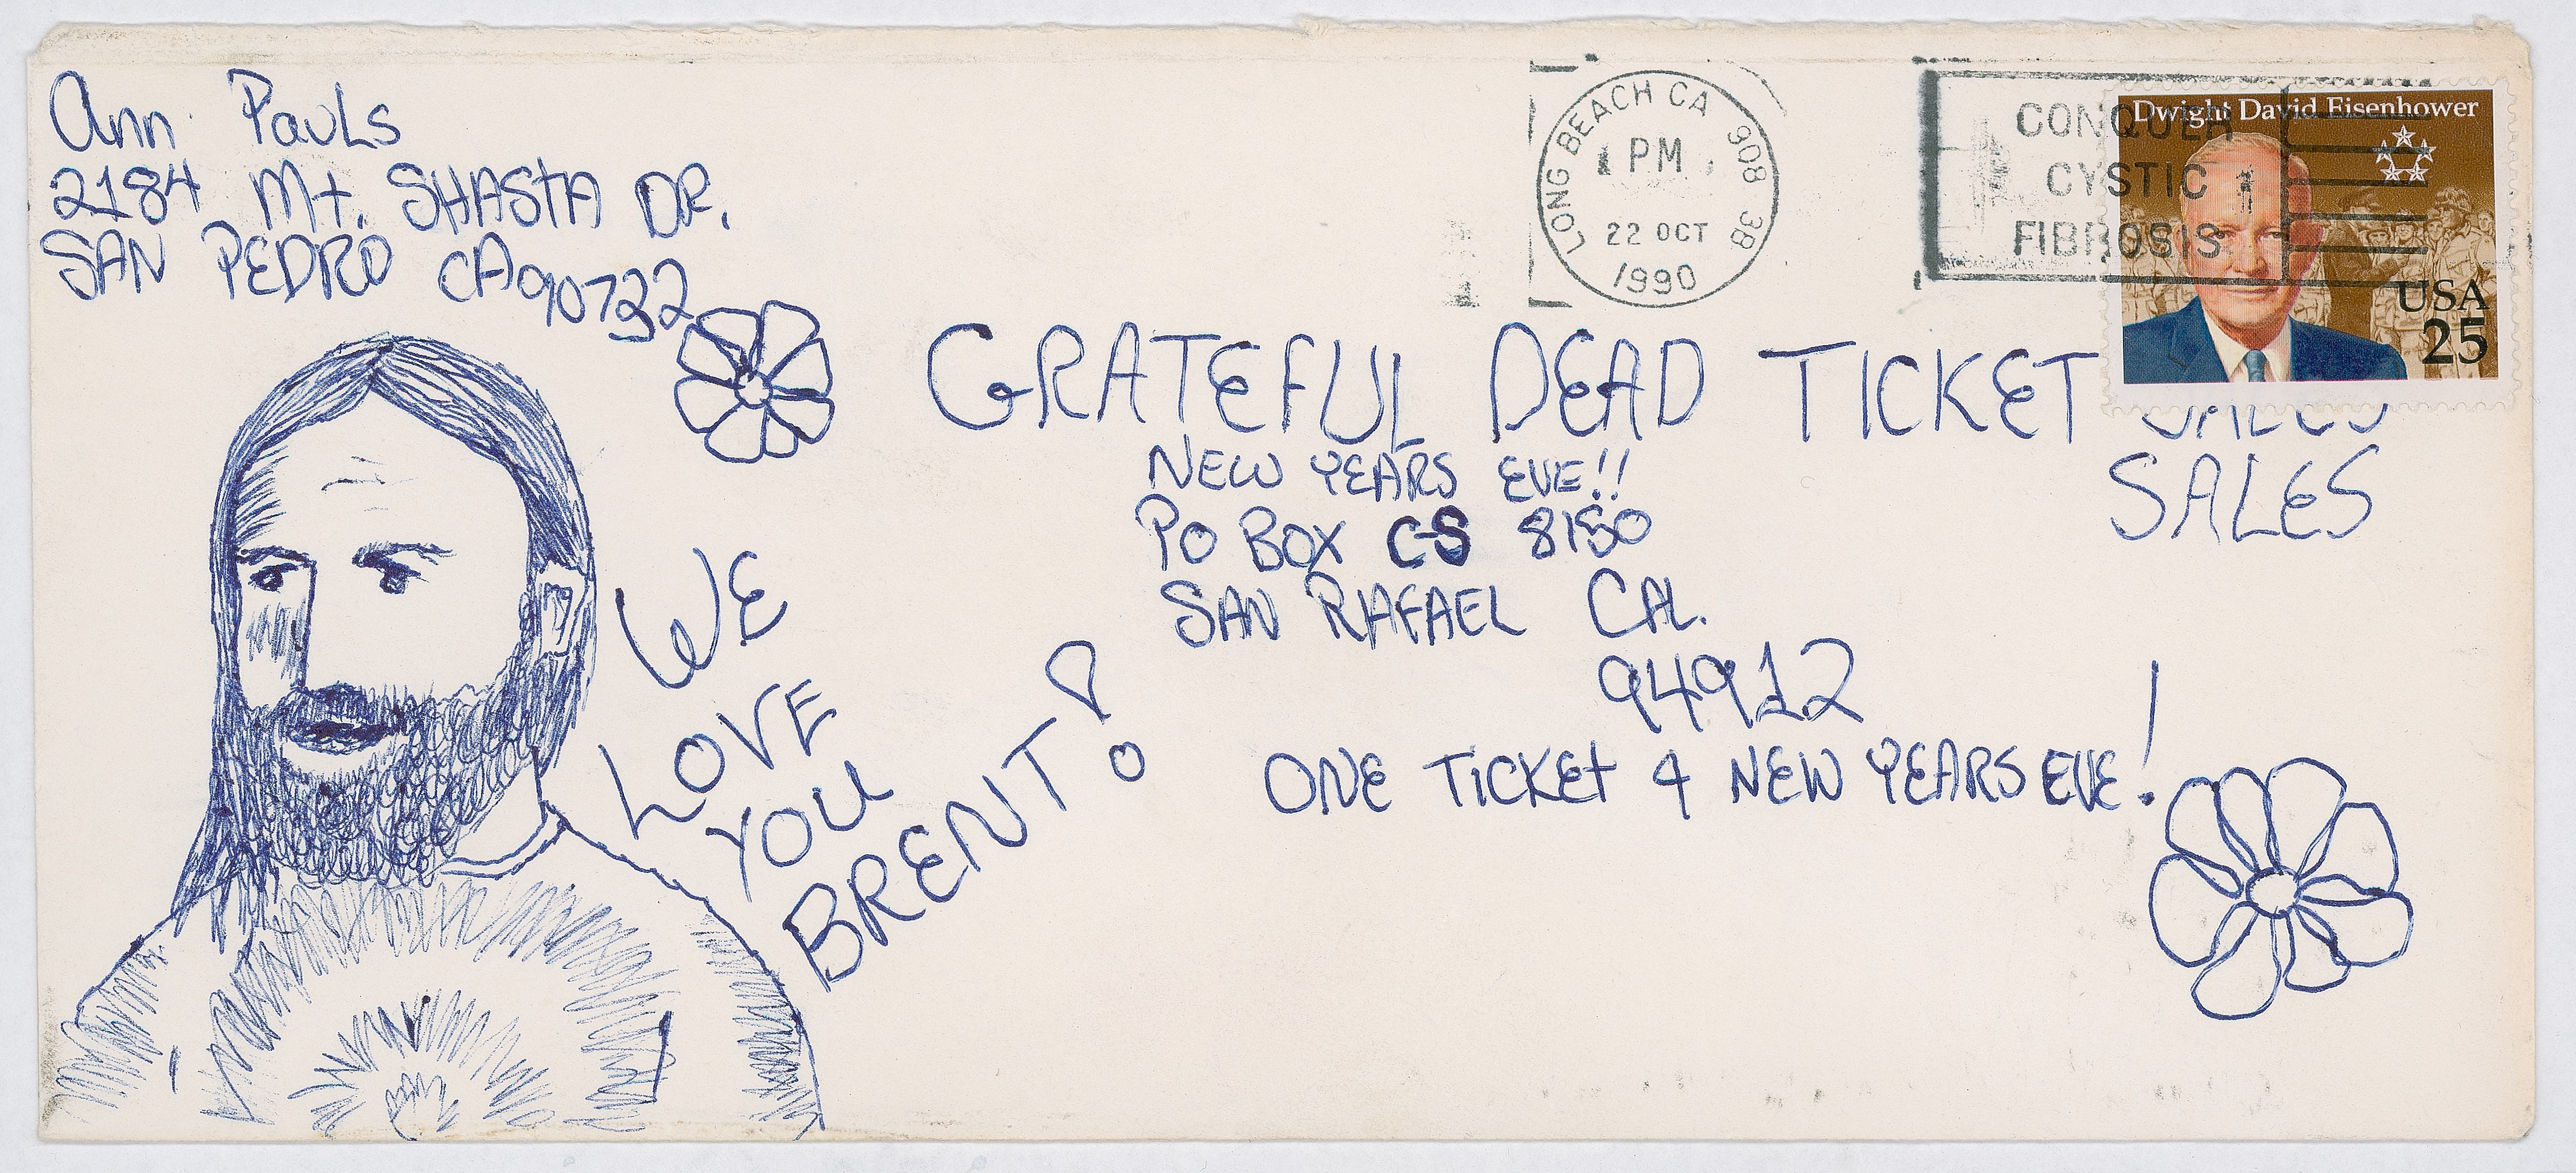 Ann Pauls
2184 Mt. SHASTA DR.
SAN PEDRO CA 90732
LONG BEACH CA 908 3B
PM
22 OCT
1990
CONQUER
CYSTIC
FIBROSIS
Dwight David Eisenhower
USA
25
GRATEFUL DEAD TICKET
SALES
NEW YEARS EVE!!
PO BOX CS 8190
SAN RAFAEL CAL.
94912
ONE TICKET 4 NEW YEARS EVE!
WE
LOVE
YOU
BRENT!